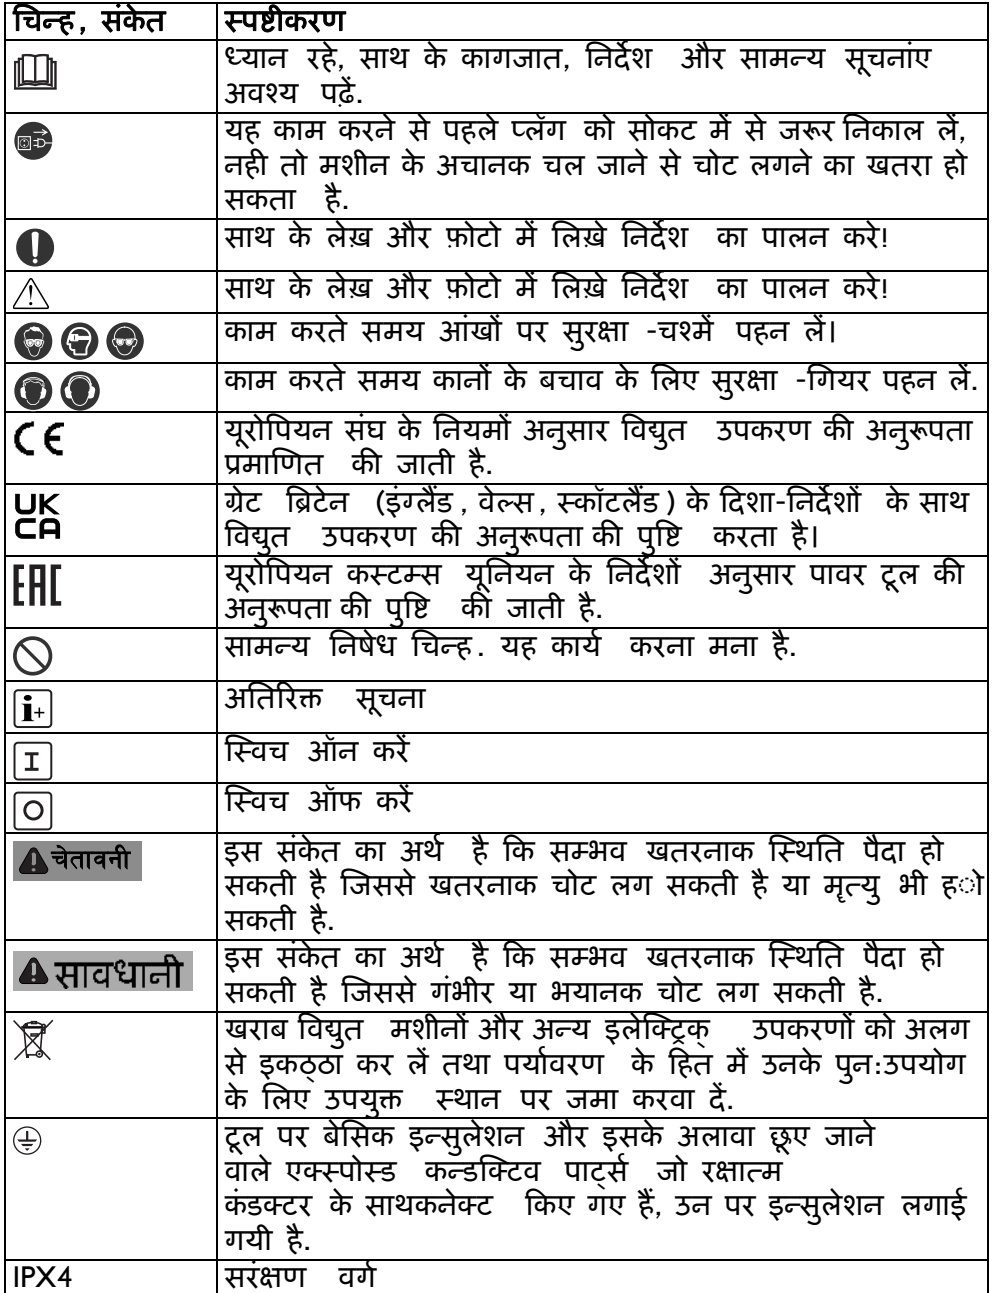 चिन्ह, संकेत स्पष्टीकरण
ध्यान रहे, साथ के कागजात, निर्देश और सामन्य सूचनांए
अवश्य पढ़ें.
यह काम करने से पहले प्लॅग को सोकट में से जरूर निकाल लें,
नही तो मशीन के अचानक चल जाने से चोट लगने का खतरा हो
सकता है.
साथ के लेख़ और फ़ोटो में लिख़े निर्देश का पालन करे!
साथ के लेख़ और फ़ोटो में लिख़े निर्देश का पालन करे!
काम करते समय आंखों पर सुरक्षा -चश्में पहन लें।
काम करते समय कानों के बचाव के लिए सुरक्षा -गियर पहन लें.
CE यूरोपियन संघ के नियमों अनुसार विद्युत उपकरण की अनुरूपता
प्रमाणित की जाती है.
UK
CA
ग्रेट ब्रिटेन (इंग्लैंड, वेल्स, स्कॉटलैंड) के दिशा-निर्देशों के साथ
विद्युत उपकरण की अनुरूपता की पुष्टि करता है।
EAC यूरोपियन कस्टम्स यूनियन के निर्देशों अनुसार पावर टूल की
अनुरूपता की पुष्टि की जाती है.
सामन्य निषेध चिन्ह. यह कार्य करना मना है.
i+ अतिरिक्त सूचना
I स्विच ऑन करें
O स्विच ऑफ करें
चेतावनी इस संकेत का अर्थ है कि सम्भव खतरनाक स्थिति पैदा हो
सकती है जिससे खतरनाक चोट लग सकती है या मृत्यु भी ह◌ो
सकती है.
सावधानी इस संकेत का अर्थ है कि सम्भव खतरनाक स्थिति पैदा हो
सकती है जिससे गंभीर या भयानक चोट लग सकती है.
खराब विद्युत मशीनों और अन्य इलेक्ट्रिक् उपकरणों को अलग
से इकठ्ठा कर लें तथा पर्यावरण के हित में उनके पुन:उपयोग
के लिए उपयुक्त स्थान पर जमा करवा दें.
टूल पर बेसिक इन्सुलेशन और इसके अलावा छूए जाने
वाले एक्स्पोस्ड कन्डक्टिव पार्ट्स जो रक्षात्म
कंडक्टर के साथकनेक्ट किए गए हैं, उन पर इन्सुलेशन लगाई
गयी है.
IPX4 सरंक्षण वर्ग